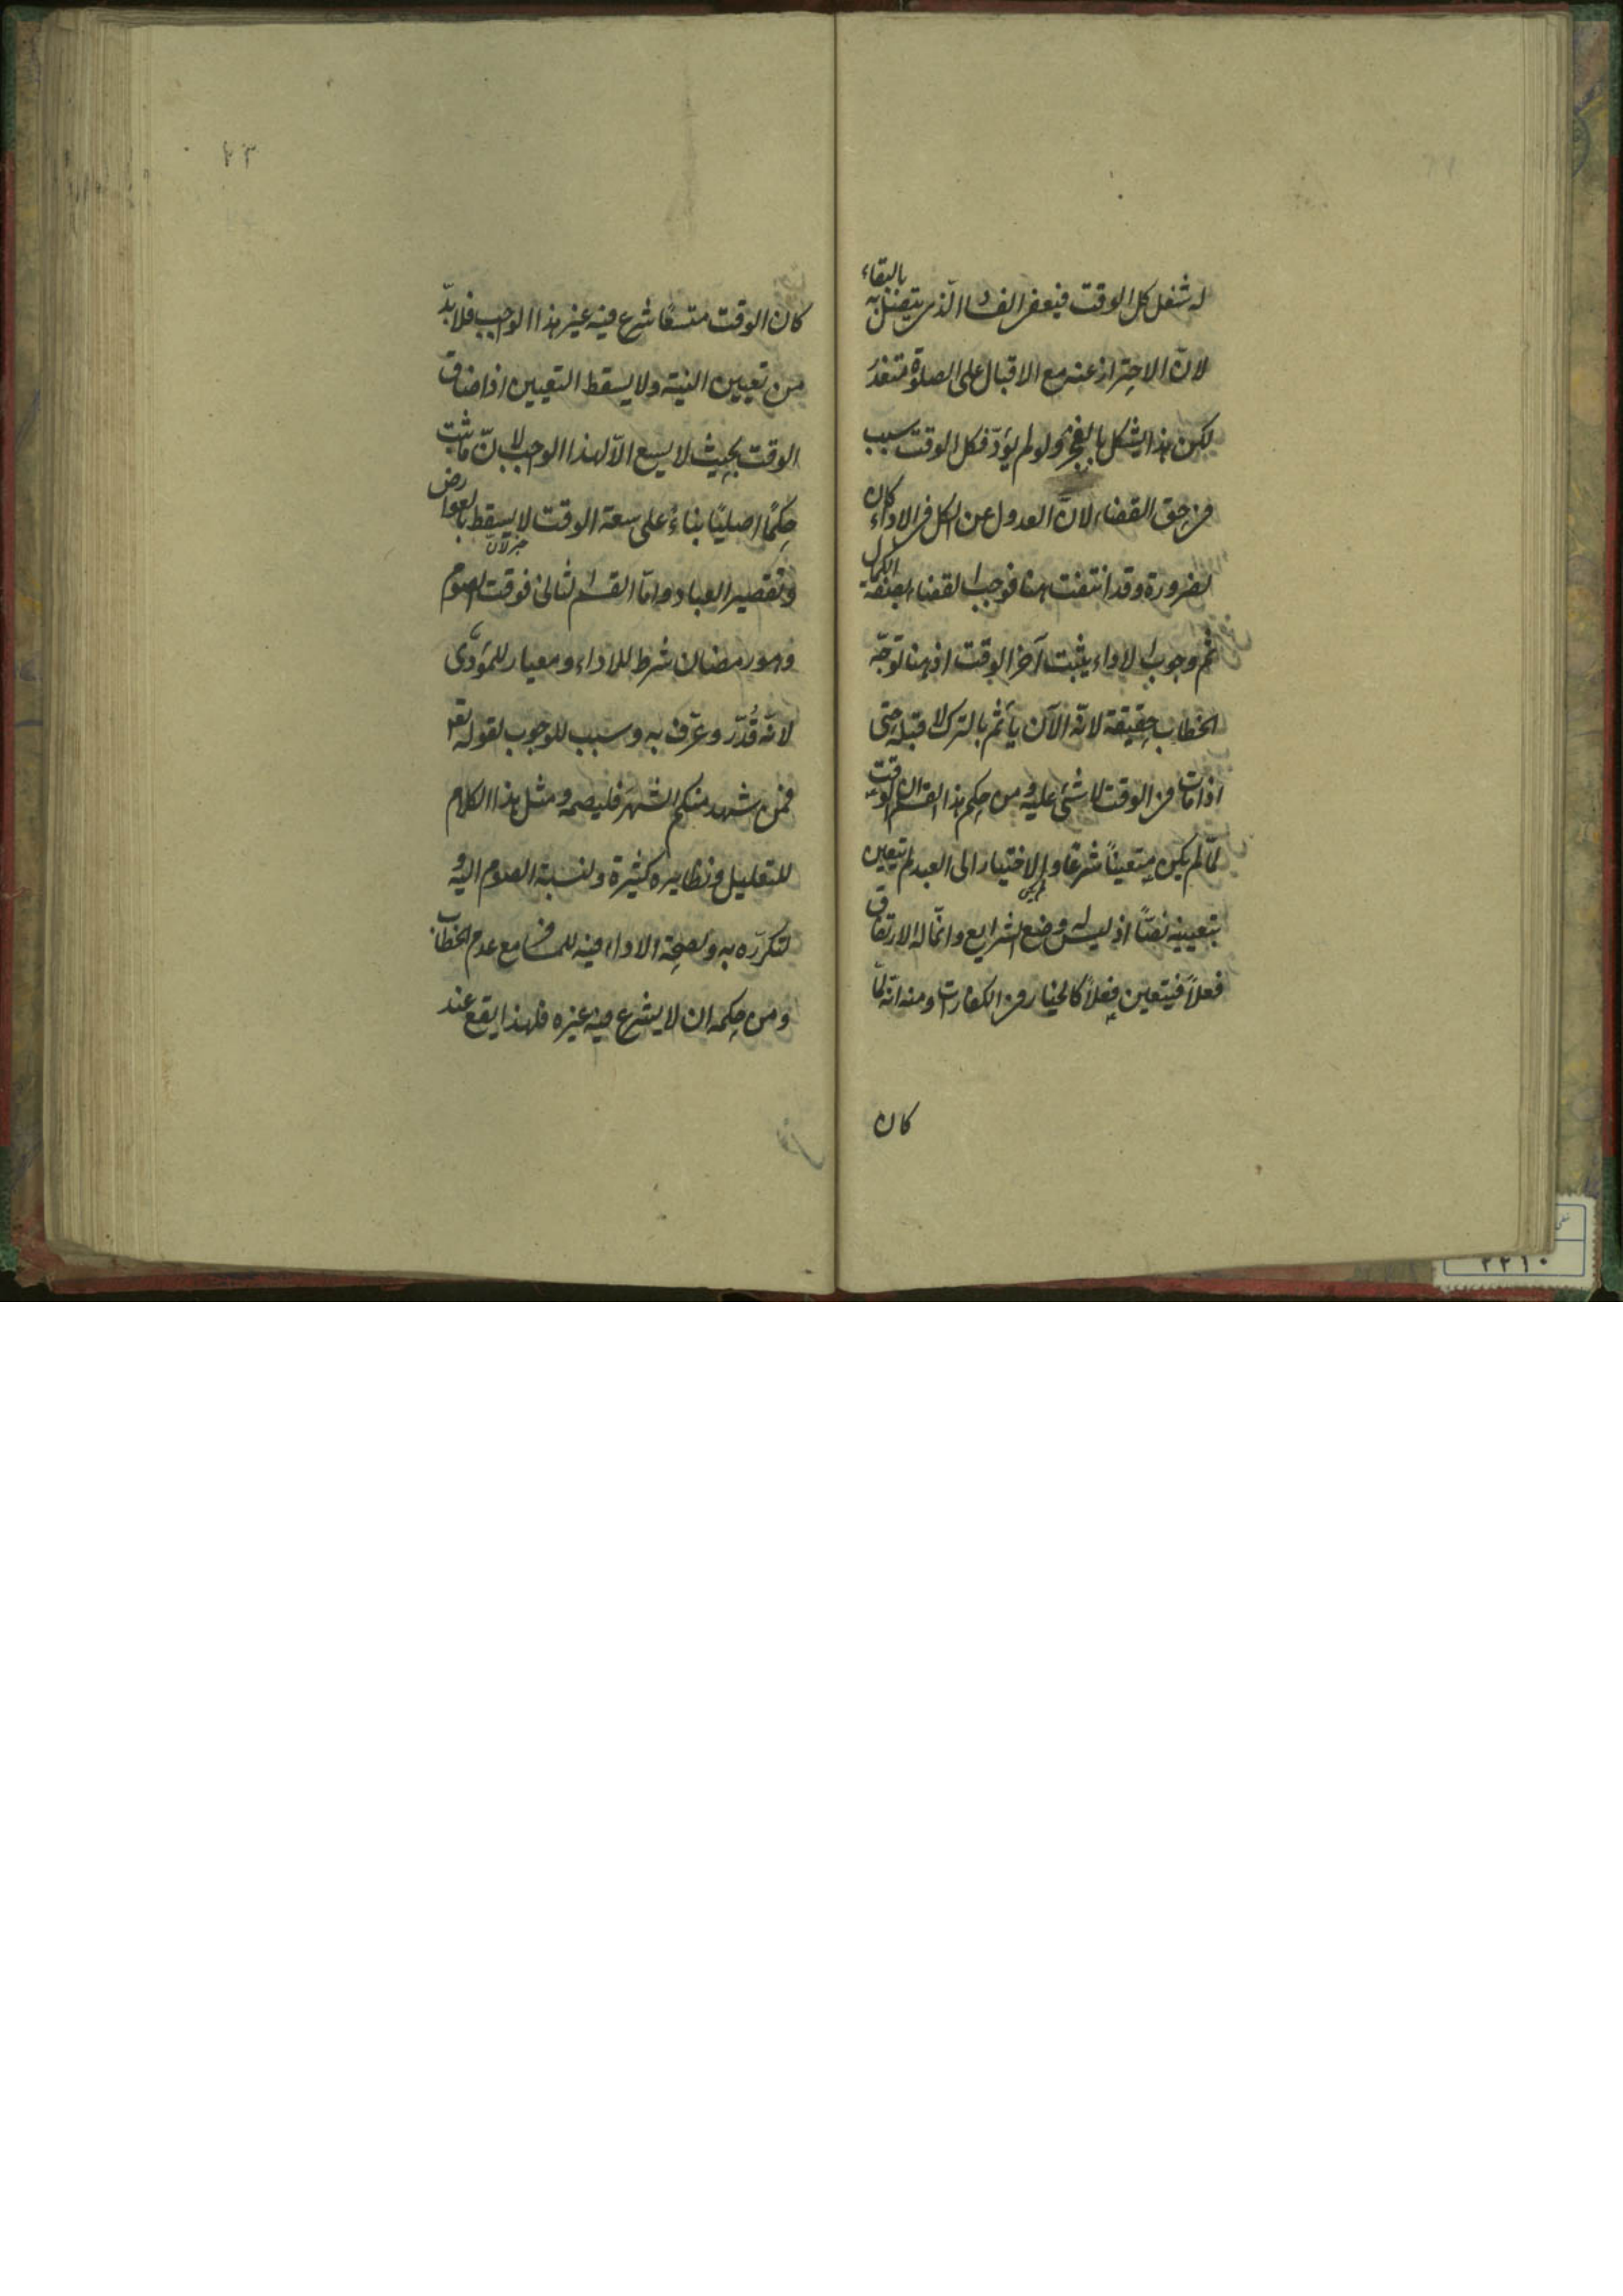 له شغل كل الوقت فيعفى الفساد الذي يتصل به بالبقاء
لانّ الاحتراز عنه مع الاقبال على الصلوة متعذر
لكن هذا يشكل بالفجر ولو لم يؤدّ فكل الوقت سبب
في حق القضاء لانّ العدول عن الكل في الاداء كان
لضرورة وقد انتفت هنا فوجب القضاء بصفة الكمال
ثم وجوب الاداء يثبت آخر الوقت اذ هنا توجّه
الخطاب حقيقة لانّه الآن يأثم بالترك لا قبله حتى
اذا مات في الوقت لا شئ عليه ومن حكم هذا القسم ان الوقت
لمّا لم يكن متعيناً شرعًا والاختيار الى العبد لم يتعين
بتعيينه نصّاً اذ ليس له وضع الشرايع وانّما له الارتفاق
فعلاً فيتعين فعلاً كالخيار في الكفارت ومنه انّه لمّا
كان
٢٣
كان الوقت متسعًا شرع فيه غير هذا الواجب فلا بدّ
من تعيين النية ولا يسقط التعيين اذا ضاق
الوقت بحيث لا يسع الّا لهذا الواجب لانّ ما ثبت
حكمًا اصليًا بناءً على سعة الوقت لا يسقط بالعوارض
وتقصير العباد وامّا القسم الثانى فوقت الصوم
وهو رمضان شرط للاداء ومعيار للمؤدّى
لانّه قُدّر وعرّف به وسبب للوجوب لقوله تع
فمن شهد منكم الشهر فليصمه ومثل هذا الكلام
للتعليل ونظايره كثيرة ولنسبة الصوم اليه و
لتكرّره به ولصحة الاداء فيه للمسافر مع عدم الخطاب
ومن حكمه ان لا يشرع فيه غيره فلهذا يقع عند
٢٢١٠